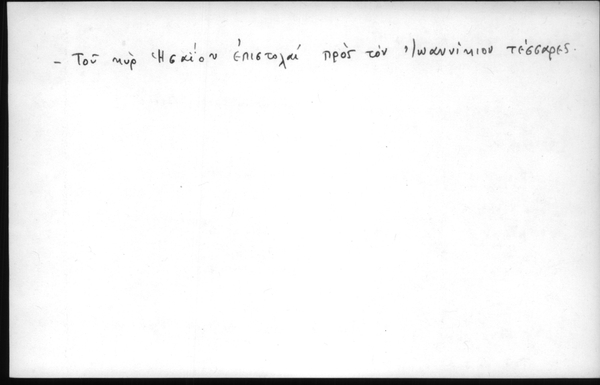 - Τοῦ κὺρ Ἡσαΐου ἐπιστολαί πρὸς τὸν Ἰωαννίκιον τέσσαρες.